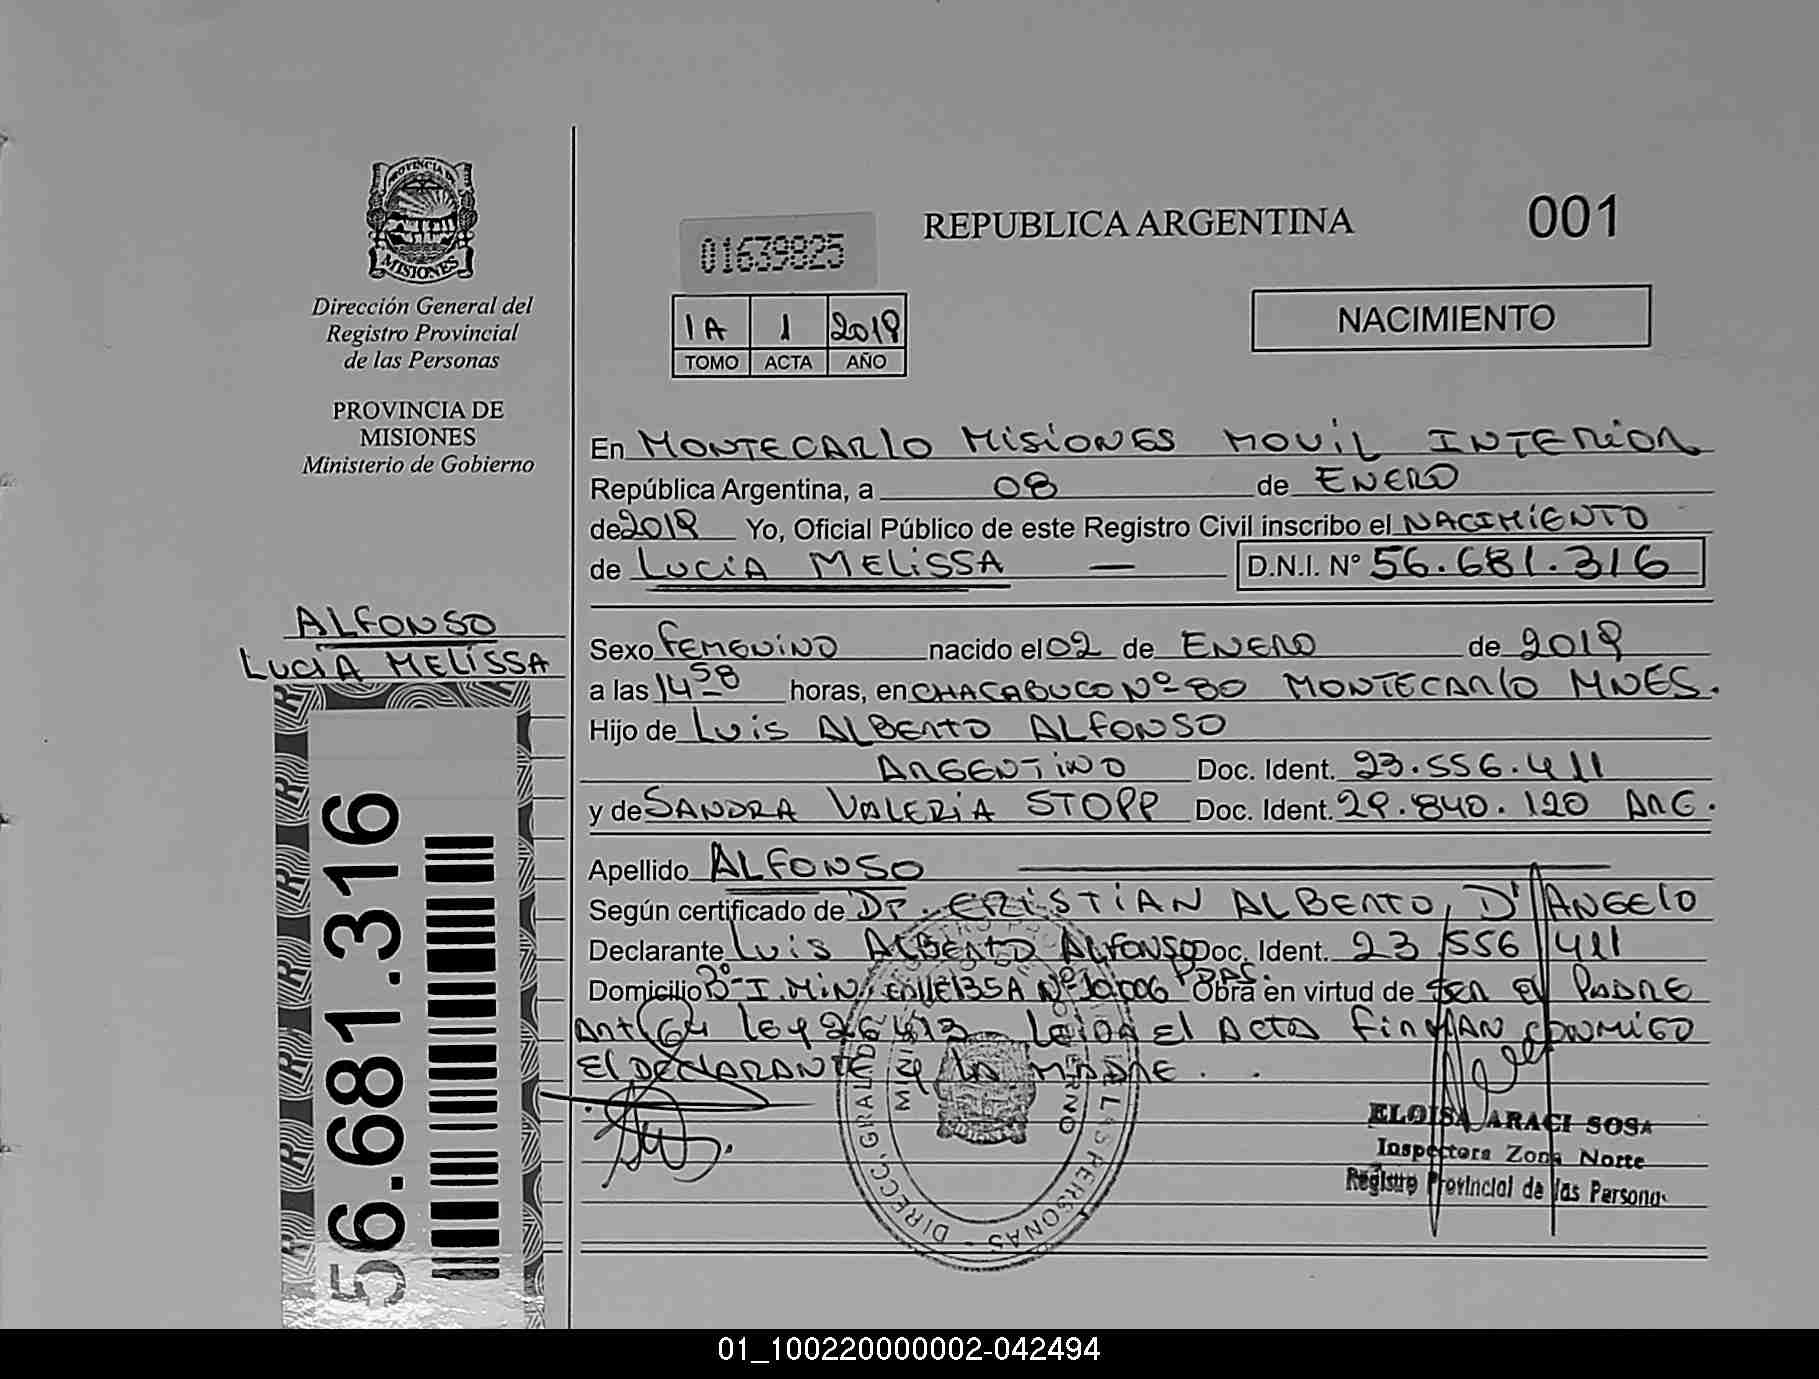 PROVINCIA DE
MISIONES
Dirección General del
Registro Provincial
de las Personas
PROVINCIA DE
MISIONES
Ministerio de Gobierno
ALFONSO
LUCIA MELISSA
56.681.316
01639825
REPUBLICA ARGENTINA
001
1A 1 2019
TOMO ACTA AÑO
NACIMIENTO
En MONTECARLO MISIONES MOVIL INTERIOR
República Argentina, a 08 de ENERO
de 2019 Yo, Oficial Público de este Registro Civil inscribo el NACIMIENTO
de LUCIA MELISSA — D.N.I. Nº 56.681.316
Sexo FEMENINO nacido el 02 de ENERO de 2019
a las 14 58 horas, en CHACABUCO Nº 80 MONTECARLO MNES.
Hijo de LUIS ALBERTO ALFONSO
ARGENTINO Doc. Ident. 23.556.411
y de SANDRA VALERIA STOPP Doc. Ident. 29.840.120 ARG.
Apellido ALFONSO
Según certificado de Dr. CRISTIAN ALBERTO D'ANGELO
Declarante LUIS ALBERTO ALFONSO Doc. Ident. 23 556 411
Domicilio Bº I. MIN. CALLE 135A Nº 10.006 Obra en virtud de SER EL PADRE
Art 64 ley 26413 Leida El Acta FIRMAN CONMIGO
El DECLARANTE y la MADRE .
DIRECC. GRAL DE LAS PERSONAS
ELOISA ARACI SOSA
Inspectora Zona Norte
Registro Provincial de las Personas
01_100220000002-042494